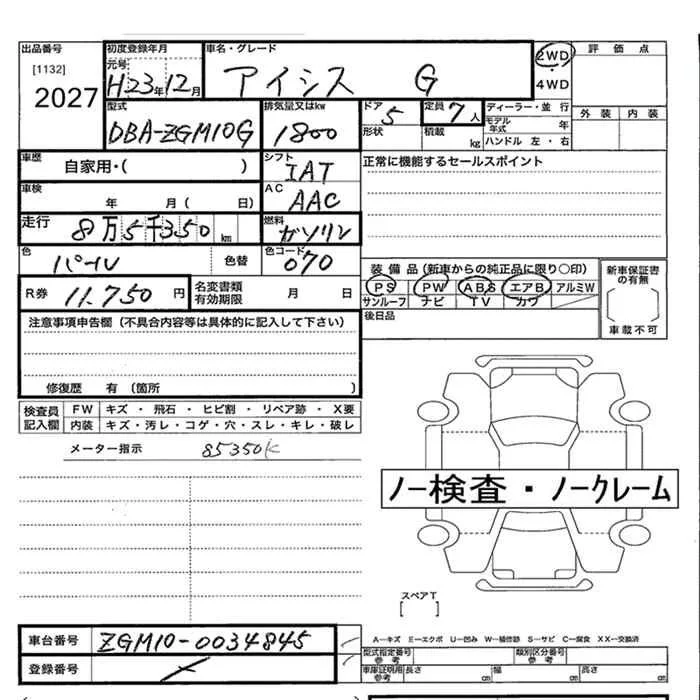 出品番号 初度登録年月 車名・グレード 評価点
[1132] 元号 2WD
2027 H23年12月 アイシス G 4WD
型式 排気量又はkw ドア 定員 ディーラー・並行 外装 内装
DBA-ZGM10G 1800 5 7人 モデル年式 年
形状 積載 kg ハンドル 左・右
車歴 自家用・( ) シフト IAT 正常に機能するセールスポイント
車検 年 月( 日) AC AAC
走行 8万5千350km 燃料 ガソリン
色 パール 色替 色コード 070
装備品(新車からの純正品に限り○印) 新車保証書の有無
R券 11,750円 名変書類有効期限 月 日
PS PW ABS エアB アルミW
サンルーフ ナビ TV カワ
車載不可
注意事項申告欄(不具合内容等は具体的に記入して下さい) 後日品
修復歴 有(箇所 )
検査員記入欄 FW キズ・飛石・ヒビ割・リペア跡・X要
内装 キズ・汚レ・コゲ・穴・スレ・キレ・破レ
メーター指示 85350K
ノー検査・ノークレーム
スペアT
[ ]
車台番号 ZGM10-0034845
A−キズ E−エクボ U−凹み W−補修跡 S−サビ C−腐食 XX−交換済
型式指定番号 参考 類別区分番号 参考
登録番号
車庫証明用参考 長さ cm 幅 cm 高さ cm